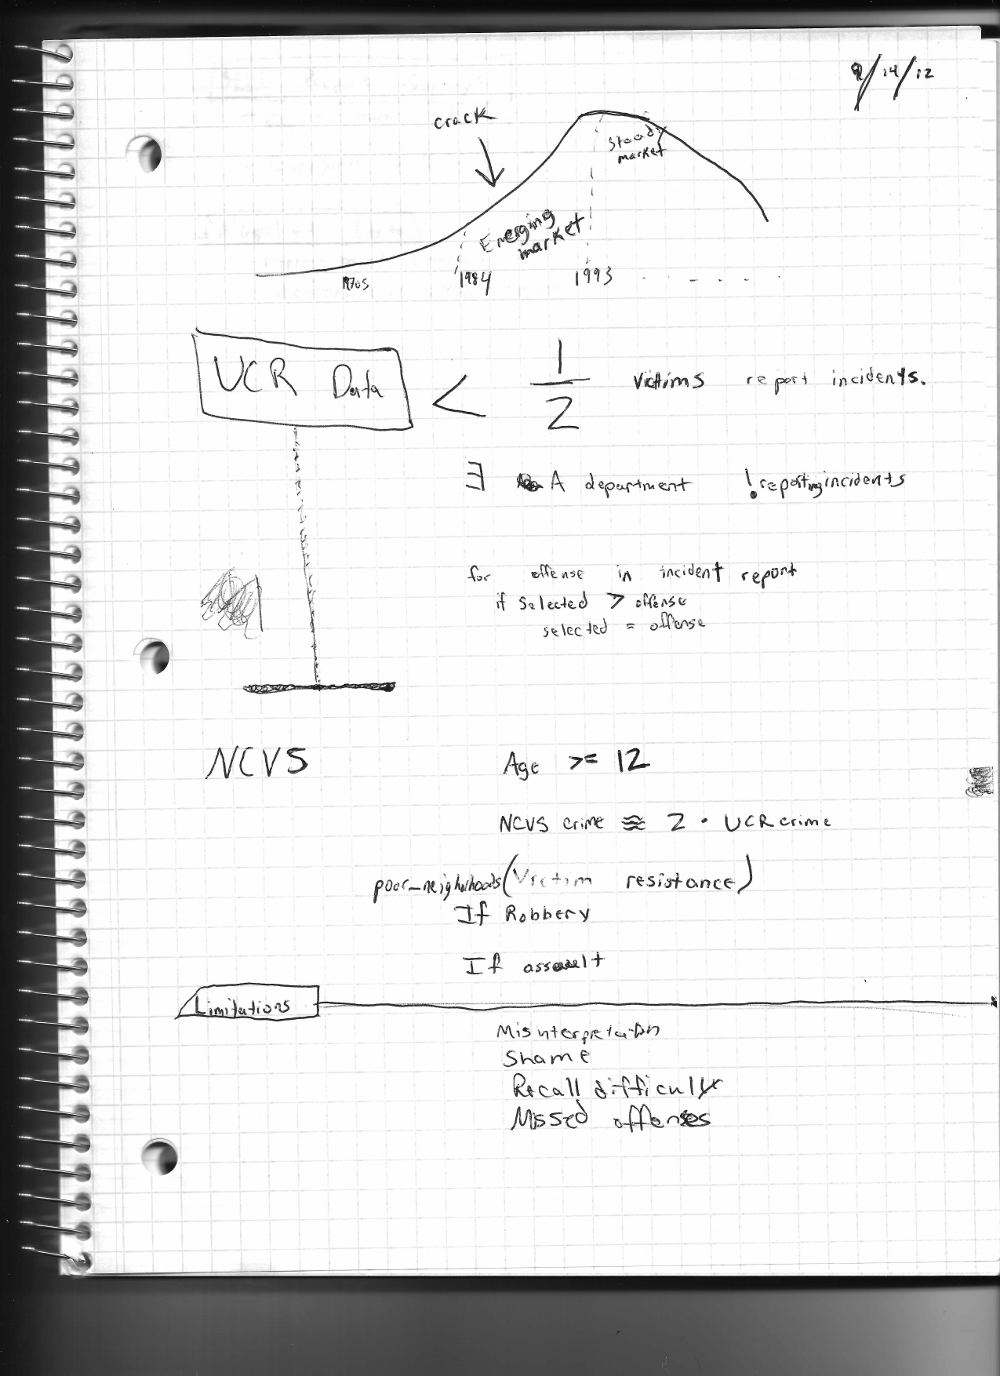 9/14/12
crack
Steady
market
Emerging
market
1970s 1984 1993
UCR Data < 1/2 victims report incidents.
∃ A department !reporting incidents
for offense in incident report
if selected > offense
selected = offense
NCVS Age >= 12
NCVS crime ≈ 2 · UCR crime
poor_neighborhoods(Victim resistance)
If Robbery
If assault
Limitations
Misinterpretation
Shame
Recall difficulty
Missed offenses